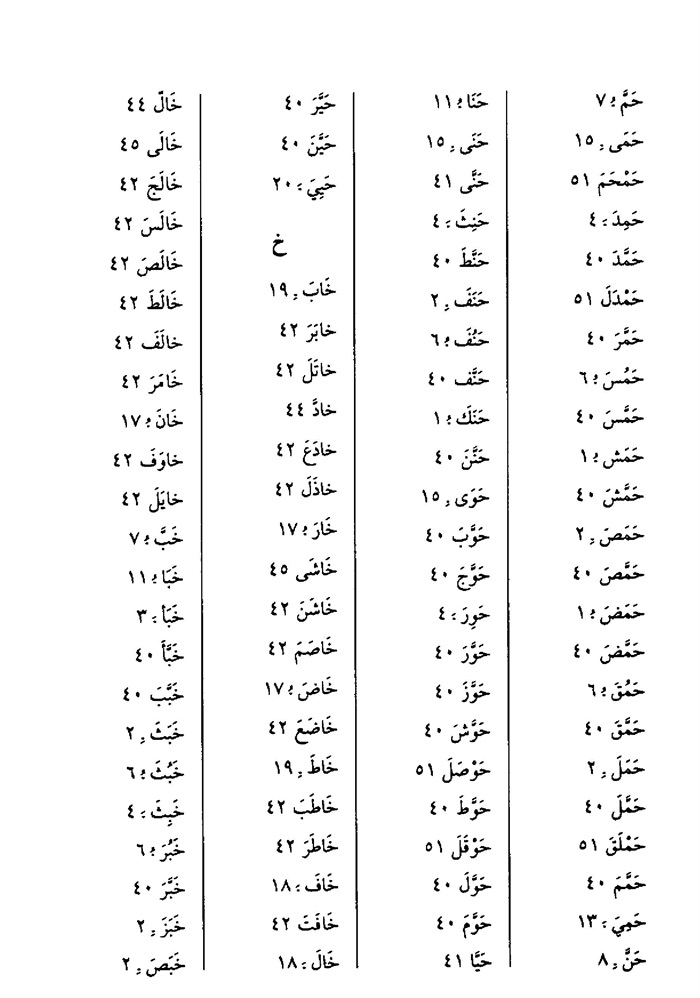 حَمَّ ـُ ٧
حَمَى ـِ ١٥
حَمْحَمَ ٥١
حَمِدَ ـَ ٤
حَمَّدَ ٤٠
حَمْدَلَ ٥١
حَمَّرَ ٤٠
حَمُسَ ـُ ٦
حَمَّسَ ٤٠
حَمَش ـُ ١
حَمَّشَ ٤٠
حَمَصَ ـِ ٢
حَمَّصَ ٤٠
حَمَضَ ـُ ١
حَمَّضَ ٤٠
حَمُقَ ـُ ٦
حَمَّقَ ٤٠
حَمَلَ ـِ ٢
حَمَّلَ ٤٠
حَمْلَقَ ٥١
حَمَّمَ ٤٠
حَمِيَ ـَ ١٣
حَنَّ ـِ ٨
حَنَا ـُ ١١
حَنَى ـِ ١٥
حَنَّى ٤١
حَنِثَ ـَ ٤
حَنَّطَ ٤٠
حَنَفَ ـِ ٢
حَنُفَ ـُ ٦
حَنَّف ٤٠
حَنَكَ ـُ ١
حَنَّنَ ٤٠
حَوَى ـِ ١٥
حَوَّبَ ٤٠
حَوَّجَ ٤٠
حَوِرَ ـَ ٤
حَوَّرَ ٤٠
حَوَّزَ ٤٠
حَوَّشَ ٤٠
حَوْصَلَ ٥١
حَوَّطَ ٤٠
حَوْقَلَ ٥١
حَوَّلَ ٤٠
حَوَّمَ ٤٠
حَيَّا ٤١
حَيَّرَ ٤٠
حَيَّنَ ٤٠
حَيِيَ ـَ ٢٠
خ
خَابَ ـِ ١٩
خابَرَ ٤٢
خاتَلَ ٤٢
خادَّ ٤٤
خادَعَ ٤٢
خاذَلَ ٤٢
خَارَ ـُ ١٧
خَاشَى ٤٥
خَاشَنَ ٤٢
خَاصَمَ ٤٢
خَاضَ ـُ ١٧
خَاضَعَ ٤٢
خَاطَ ـِ ١٩
خَاطَبَ ٤٢
خَاطَرَ ٤٢
خَافَ ـَ ١٨
خَافَتَ ٤٢
خَالَ ـَ ١٨
خَالَّ ٤٤
خَالَى ٤٥
خَالَجَ ٤٢
خَالَسَ ٤٢
خَالَصَ ٤٢
خَالَطَ ٤٢
خالَفَ ٤٢
خَامَرَ ٤٢
خَانَ ـُ ١٧
خاوَفَ ٤٢
خايَلَ ٤٢
خَبَّ ـُ ٧
خَبَا ـُ ١١
خَبَأَ ـَ ٣
خَبَّأَ ٤٠
خَبَّبَ ٤٠
خَبَثَ ـِ ٢
خَبُثَ ـُ ٦
خَبِثَ ـَ ٤
خَبُرَ ـُ ٦
خَبَّرَ ٤٠
خَبَزَ ـِ ٢
خَبَصَ ـِ ٢